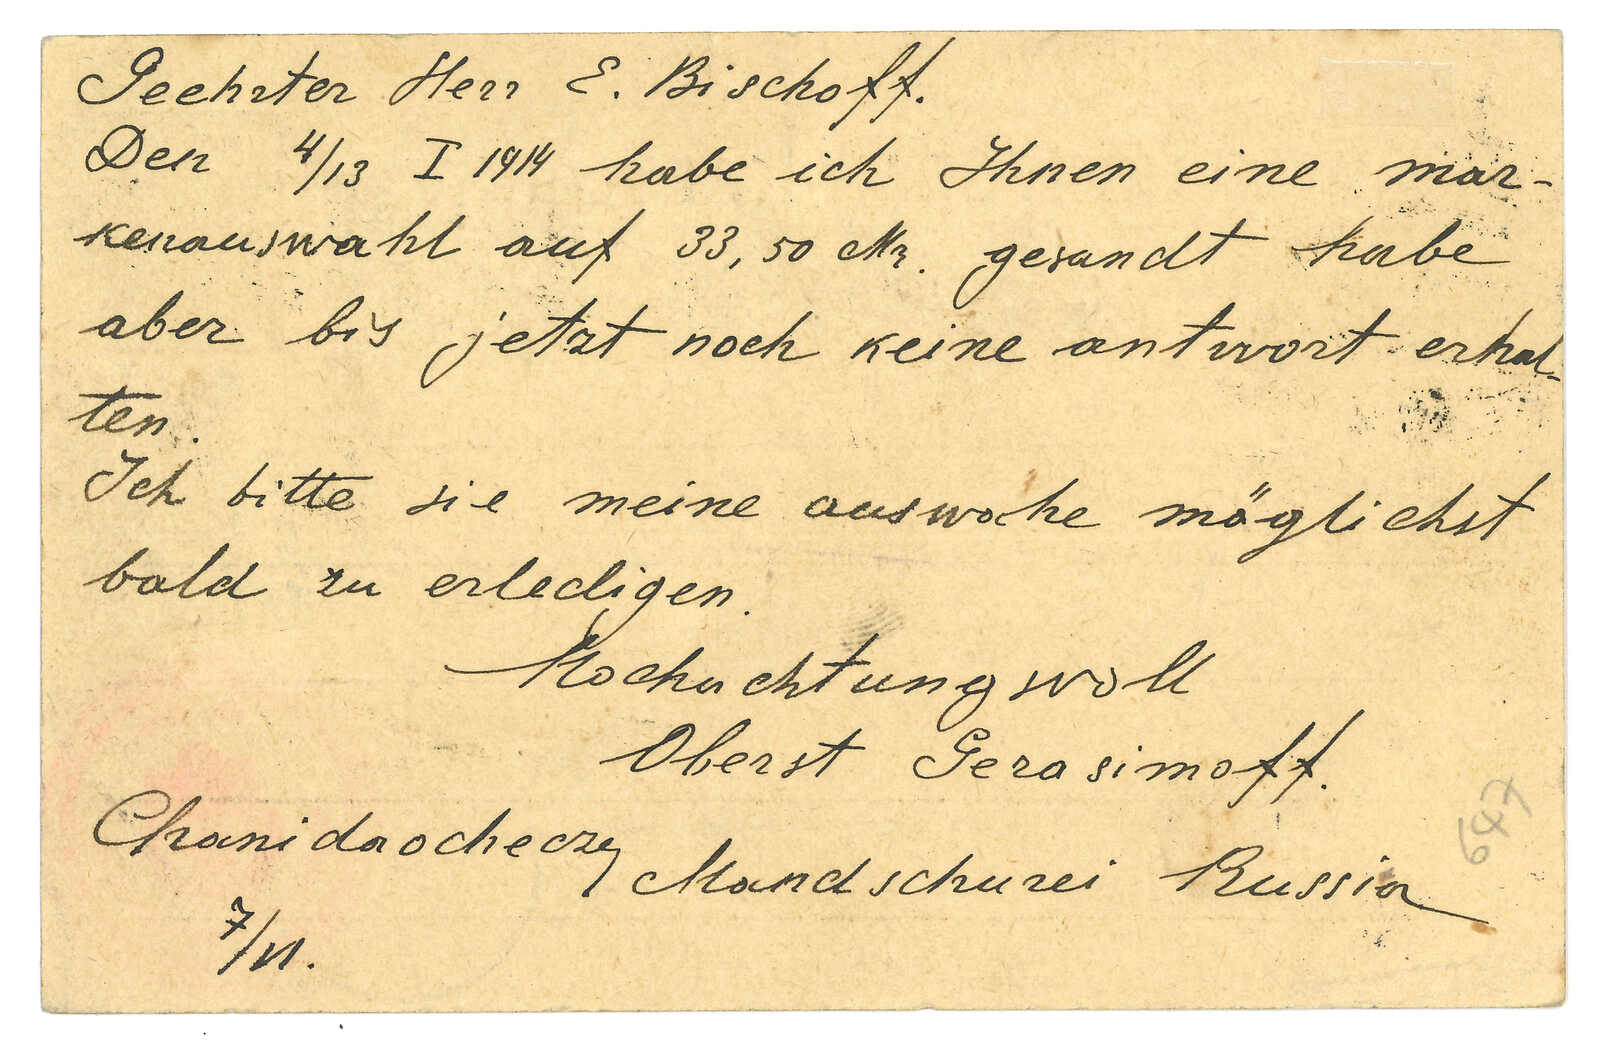 Geehrter Herr E. Bischoff.
Den 4/13 I 1914 habe ich Ihnen eine mar-
kenauswahl auf 33,50 Mr. gesandt habe
aber bis jetzt noch keine antwort erhal-
ten.
Ich bitte sie meine auswahe möglichst
bald zu erledigen.
Hochachtungswoll
Oberst Gerasimoff.
Mandschurei Russia
7/VI.
647